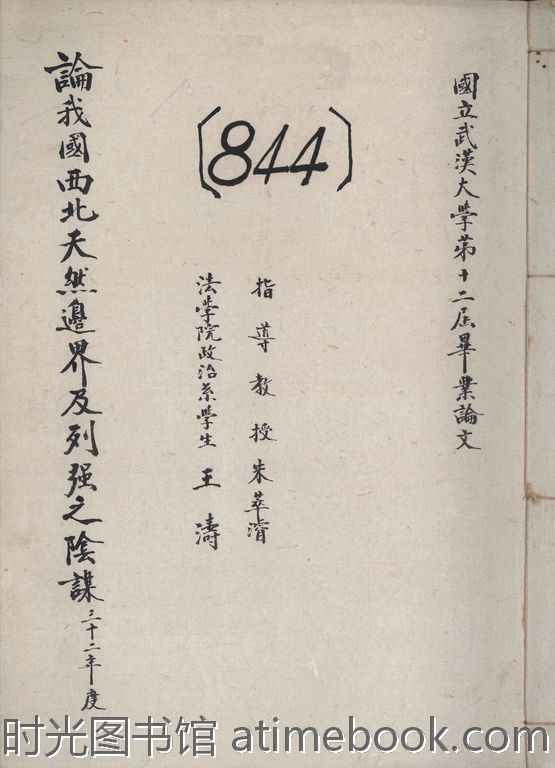 國立武漢大學第十二屆畢業論文
〔844〕
指導教授朱萃濬
法學院政治系學生王濤
論我國西北天然邊界及列强之陰謀三十二年度
时光图书馆 atimebook.com